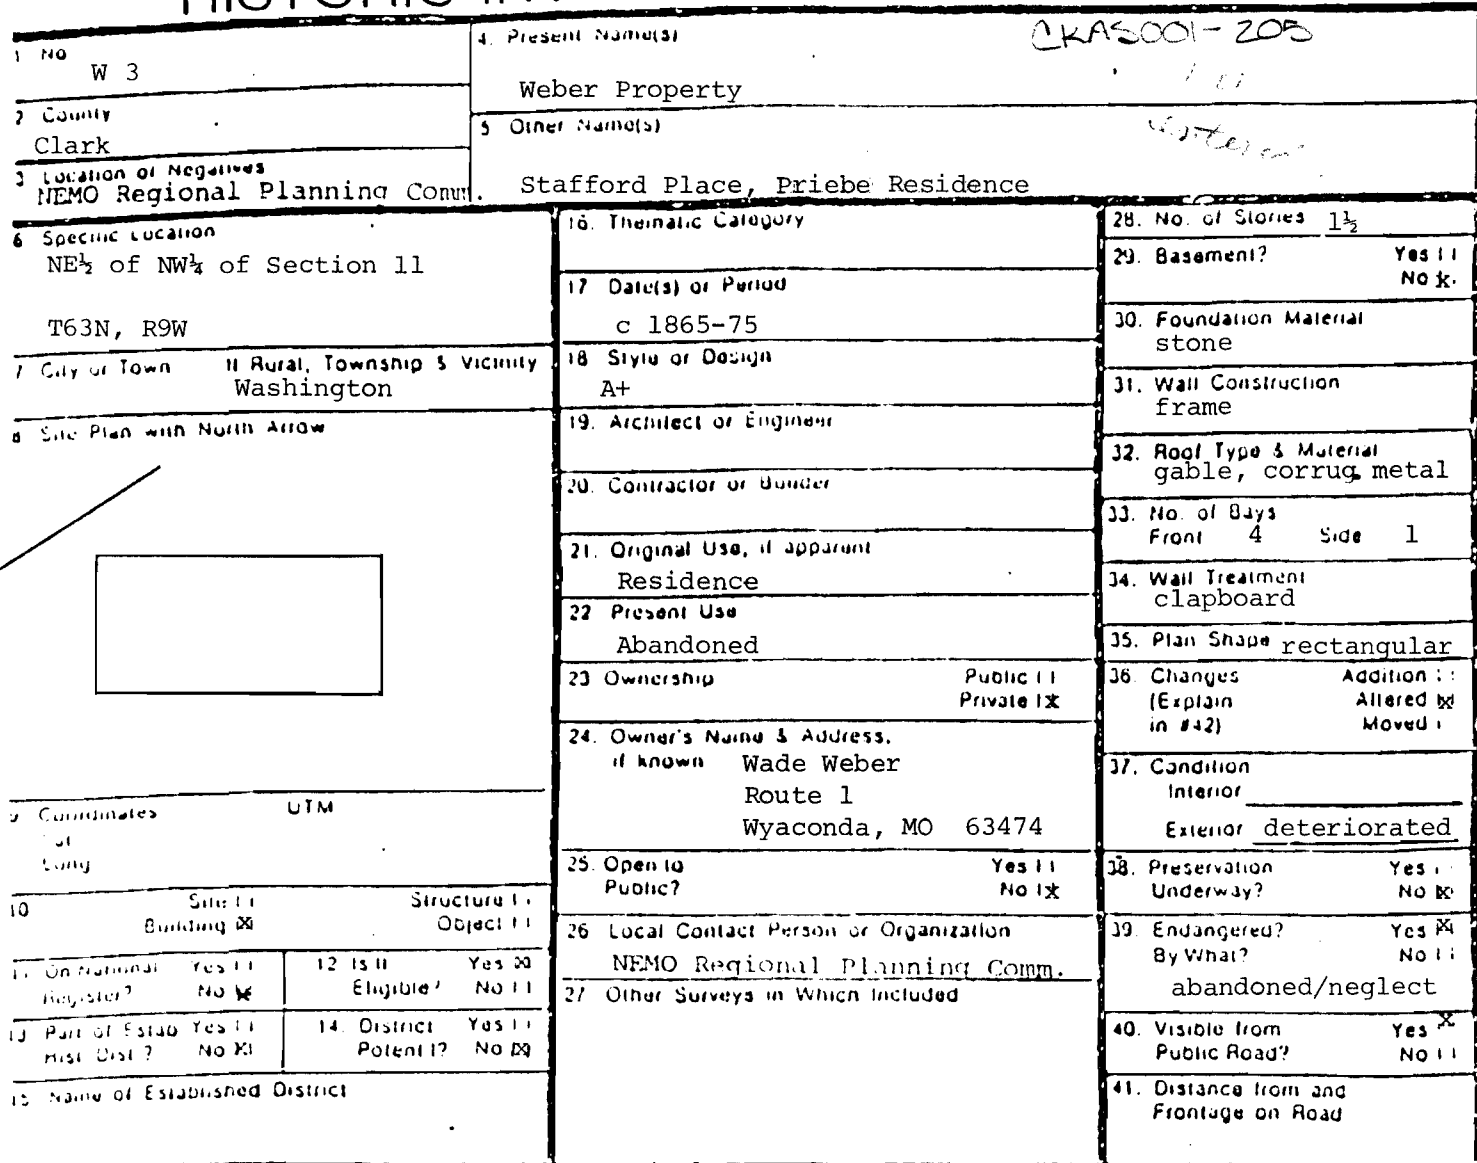 1 No
W 3
2 County
Clark
3 Location of Negatives
NEMO Regional Planning Comm.
4. Present Name(s)
CKAS001-205
Weber Property
5 Other Name(s)
Stafford Place, Priebe Residence
6 Specific Location
NE½ of NW¼ of Section 11
T63N, R9W
7 City or Town If Rural, Township & Vicinity
Washington
8 Site Plan with North Arrow
9 Coordinates UTM
Lat
Long
10 Site Structure
Building x Object
11 On National Register? Yes No x
12 Is It Eligible? Yes x No
13 Part of Estab Hist. Dist.? Yes No x
14. District Potent'l? Yes No x
15 Name of Established District
16. Thematic Category
17 Date(s) or Period
c 1865-75
18 Style or Design
A+
19. Architect or Engineer
20. Contractor or Builder
21. Original Use, if apparent
Residence
22 Present Use
Abandoned
23 Ownership Public
Private x
24. Owner's Name & Address,
if known Wade Weber
Route 1
Wyaconda, MO 63474
25. Open to Yes
Public? No x
26 Local Contact Person or Organization
NEMO Regional Planning Comm.
27 Other Surveys in Which Included
28. No. of Stories 1½
29. Basement? Yes
No x
30. Foundation Material
stone
31. Wall Construction
frame
32. Roof Type & Material
gable, corrug. metal
33. No. of Bays
Front 4 Side 1
34. Wall Treatment
clapboard
35. Plan Shape rectangular
36. Changes Addition
(Explain Altered x
in #42) Moved
37. Condition
Interior
Exterior deteriorated
38. Preservation Yes
Underway? No x
39. Endangered? Yes x
By What? No
abandoned/neglect
40. Visible from Yes x
Public Road? No
41. Distance from and
Frontage on Road